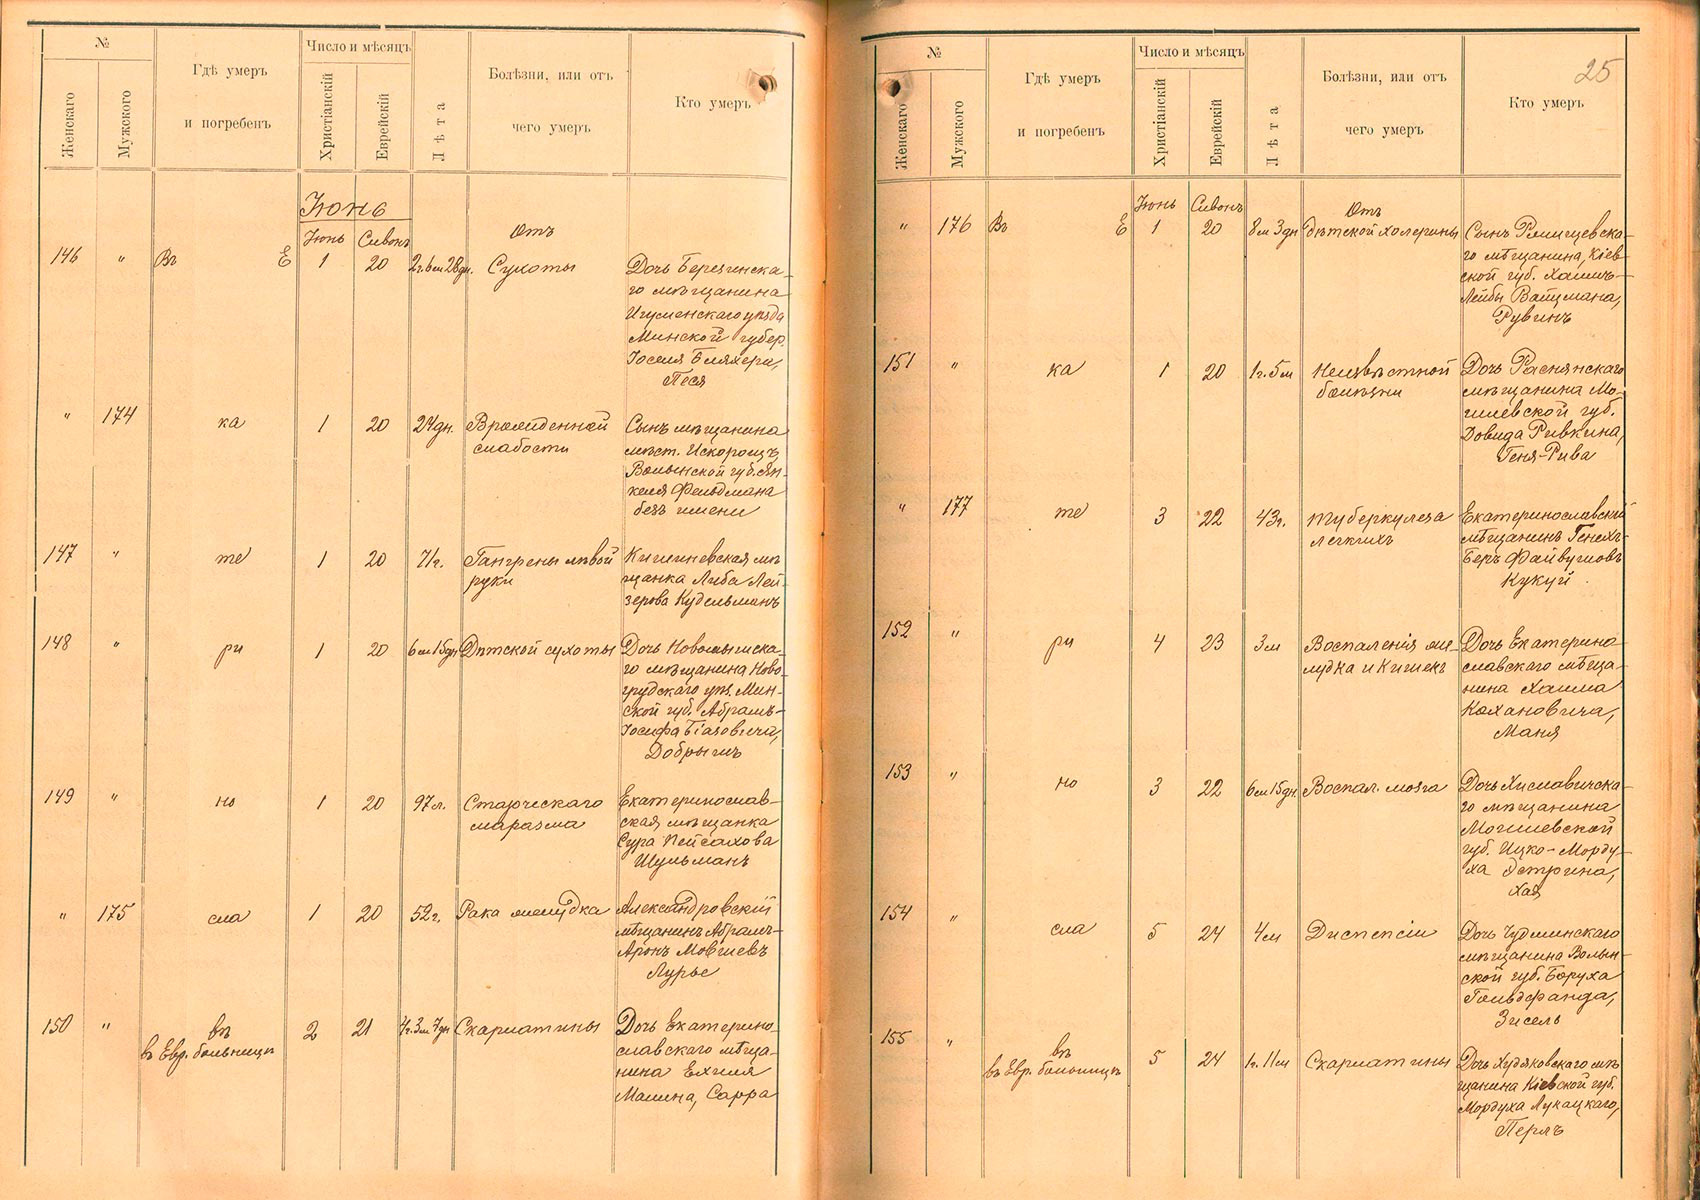 №
Число и мѣсяцъ
Женскаго
Мужского
Гдѣ умеръ
и погребенъ
Христіанскій
Еврейскій
Лѣта
Болѣзни, или отъ
чего умеръ
Кто умеръ
Іюнь
Іюнь Сивонъ
Отъ
146 " Въ Е 1 20 2г.6м28дн. Сухоты
Дочь Березинска-
го мѣщанина
Игуменскаго уѣзда
Минской губер.
Іоселя Бляхера,
Песя
" 174 ка 1 20 24дн. Врожденной
слабости
Сынъ мѣщанина
мѣст. Искорощъ
Волынской губ. Ян-
келя Фельдмана
безъ имени
147 " те 1 20 71г. Гангрены лѣвой
руки
Кишиневская мѣ-
щанка Либа Лей-
зерова Кудельманъ
148 " ри 1 20 6м15дн Дѣтской сухоты
Дочь Новомышска-
го мѣщанина Ново-
грудскаго уѣз. Мин-
ской губ. Абрамъ-
Іосифа
149 " но 1 20 97л. Старческаго
маразма
Екатеринослав-
ская мѣщанка
Сура Пейсахова
Шульманъ
" 175 сла 1 20 52г. Рака желудка
Александровскій
мѣщанинъ Абрамъ-
Аронъ Мовшевъ
Лурье
150 " въ
въ Евр. больницѣ
2 21 4г.3м7дн Скарлатины
Дочь Екатерино-
славскаго мѣща-
нина Ехиля
Малина, Сарра
25
№
Число и мѣсяцъ
Женскаго
Мужского
Гдѣ умеръ
и погребенъ
Христіанскій
Еврейскій
Лѣта
Болѣзни, или отъ
чего умеръ
Кто умеръ
Іюнь Сивонъ
Отъ
" 176 Въ Е 1 20 8м3дн дѣтской холерины
Сынъ Ржищевска-
го мѣщанина, Кіев-
ской губ. Хаимъ-
Лейбы Вайцмана,
Рувинъ
151 " ка 1 20 1г.5м Неизвѣстной
болѣзни
Дочь Раснянскаго
мѣщанина Мо-
гилевской губ.
Довида Ривкина,
Геня-Рива
" 177 те 3 22 43г. туберкулеза
легкихъ
Екатеринославскій
мѣщанинъ Генехъ-
Беръ Файвушовъ
Кукуй
152 " ри 4 23 3м Воспаленія же-
лудка и кишекъ
Дочь Екатерино-
славскаго мѣща-
нина Хаима
Кахановича,
Маня
153 " но 3 22 6м15дн. Воспал. мозга
Дочь Хиславичска-
го мѣщанина
Могилевской
губ. Ицко-Морду-
ха Острина,
Хая
154 " сла 5 24 4м Диспепсіи
Дочь Чудминскаго
мѣщанина Волын-
ской губ. Боруха
Гольдфанда,
Зисель
155 " въ
въ Евр. больницѣ
5 24 1г.11м Скарлатины
Дочь Ходяковскаго мѣ-
щанина Кіевской губ.
Мордуха Лукацкаго,
Перль